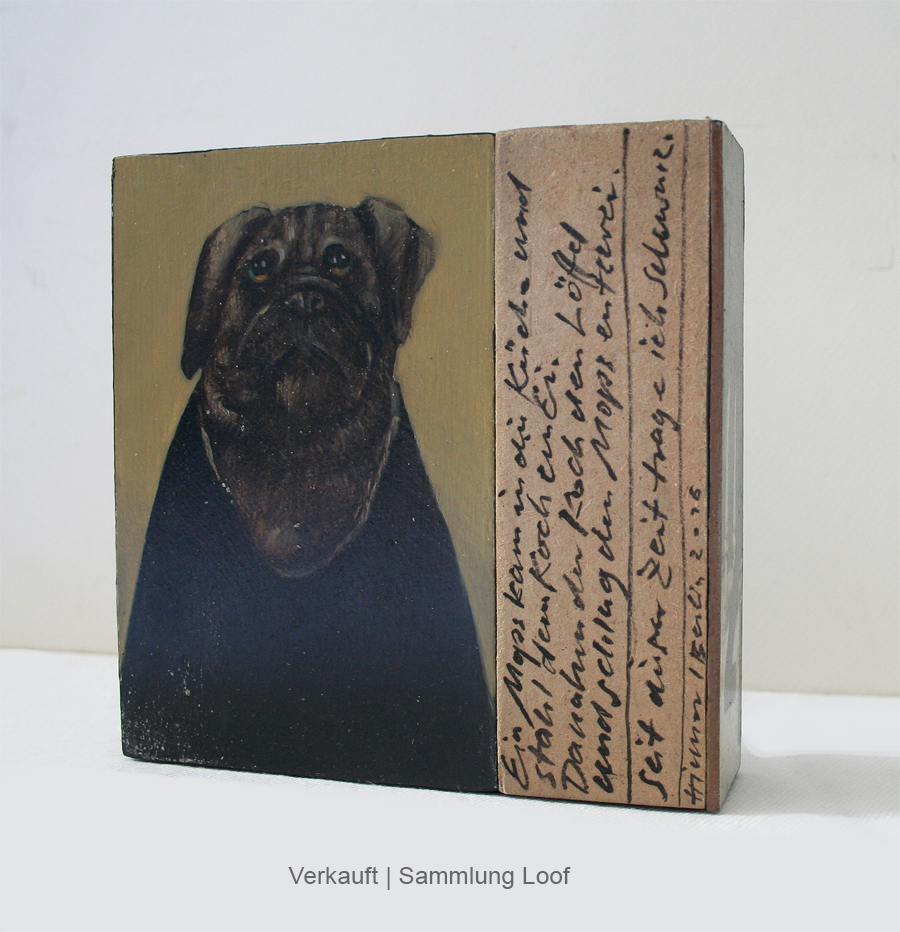 Ein Mops kam in die Küche und
stahl dem Koch ein Ei.
Da nahm der Koch den Löffel
und schlug den Mops entzwei.
seit dieser Zeit trage ich schwarz.
Berlin 2006
Verkauft | Sammlung Loof